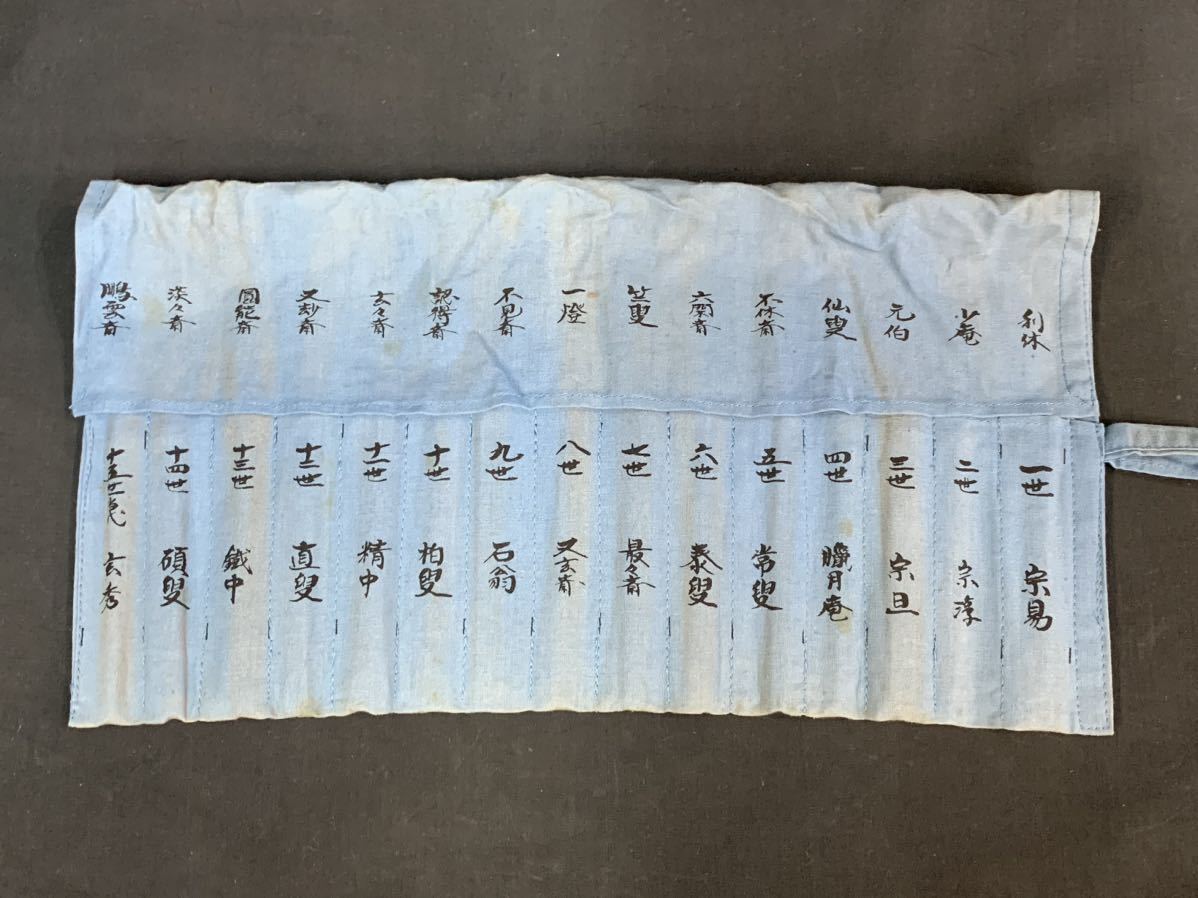 利休
少庵
元伯
仙叟
不休斎
六閑斎
竺叟
一燈
不見斎
認得斎
玄々斎
又玅斎
圓能斎
淡々斎
鵬雲斎
一世 宗易
二世 宗淳
三世 宗旦
四世 臘月庵
五世 常叟
六世 泰叟
七世 最々斎
八世 又玄斎
九世 石翁
十世 柏叟
十一世 精中
十二世 直叟
十三世 鐵中
十四世 碩叟
十五世 玄秀